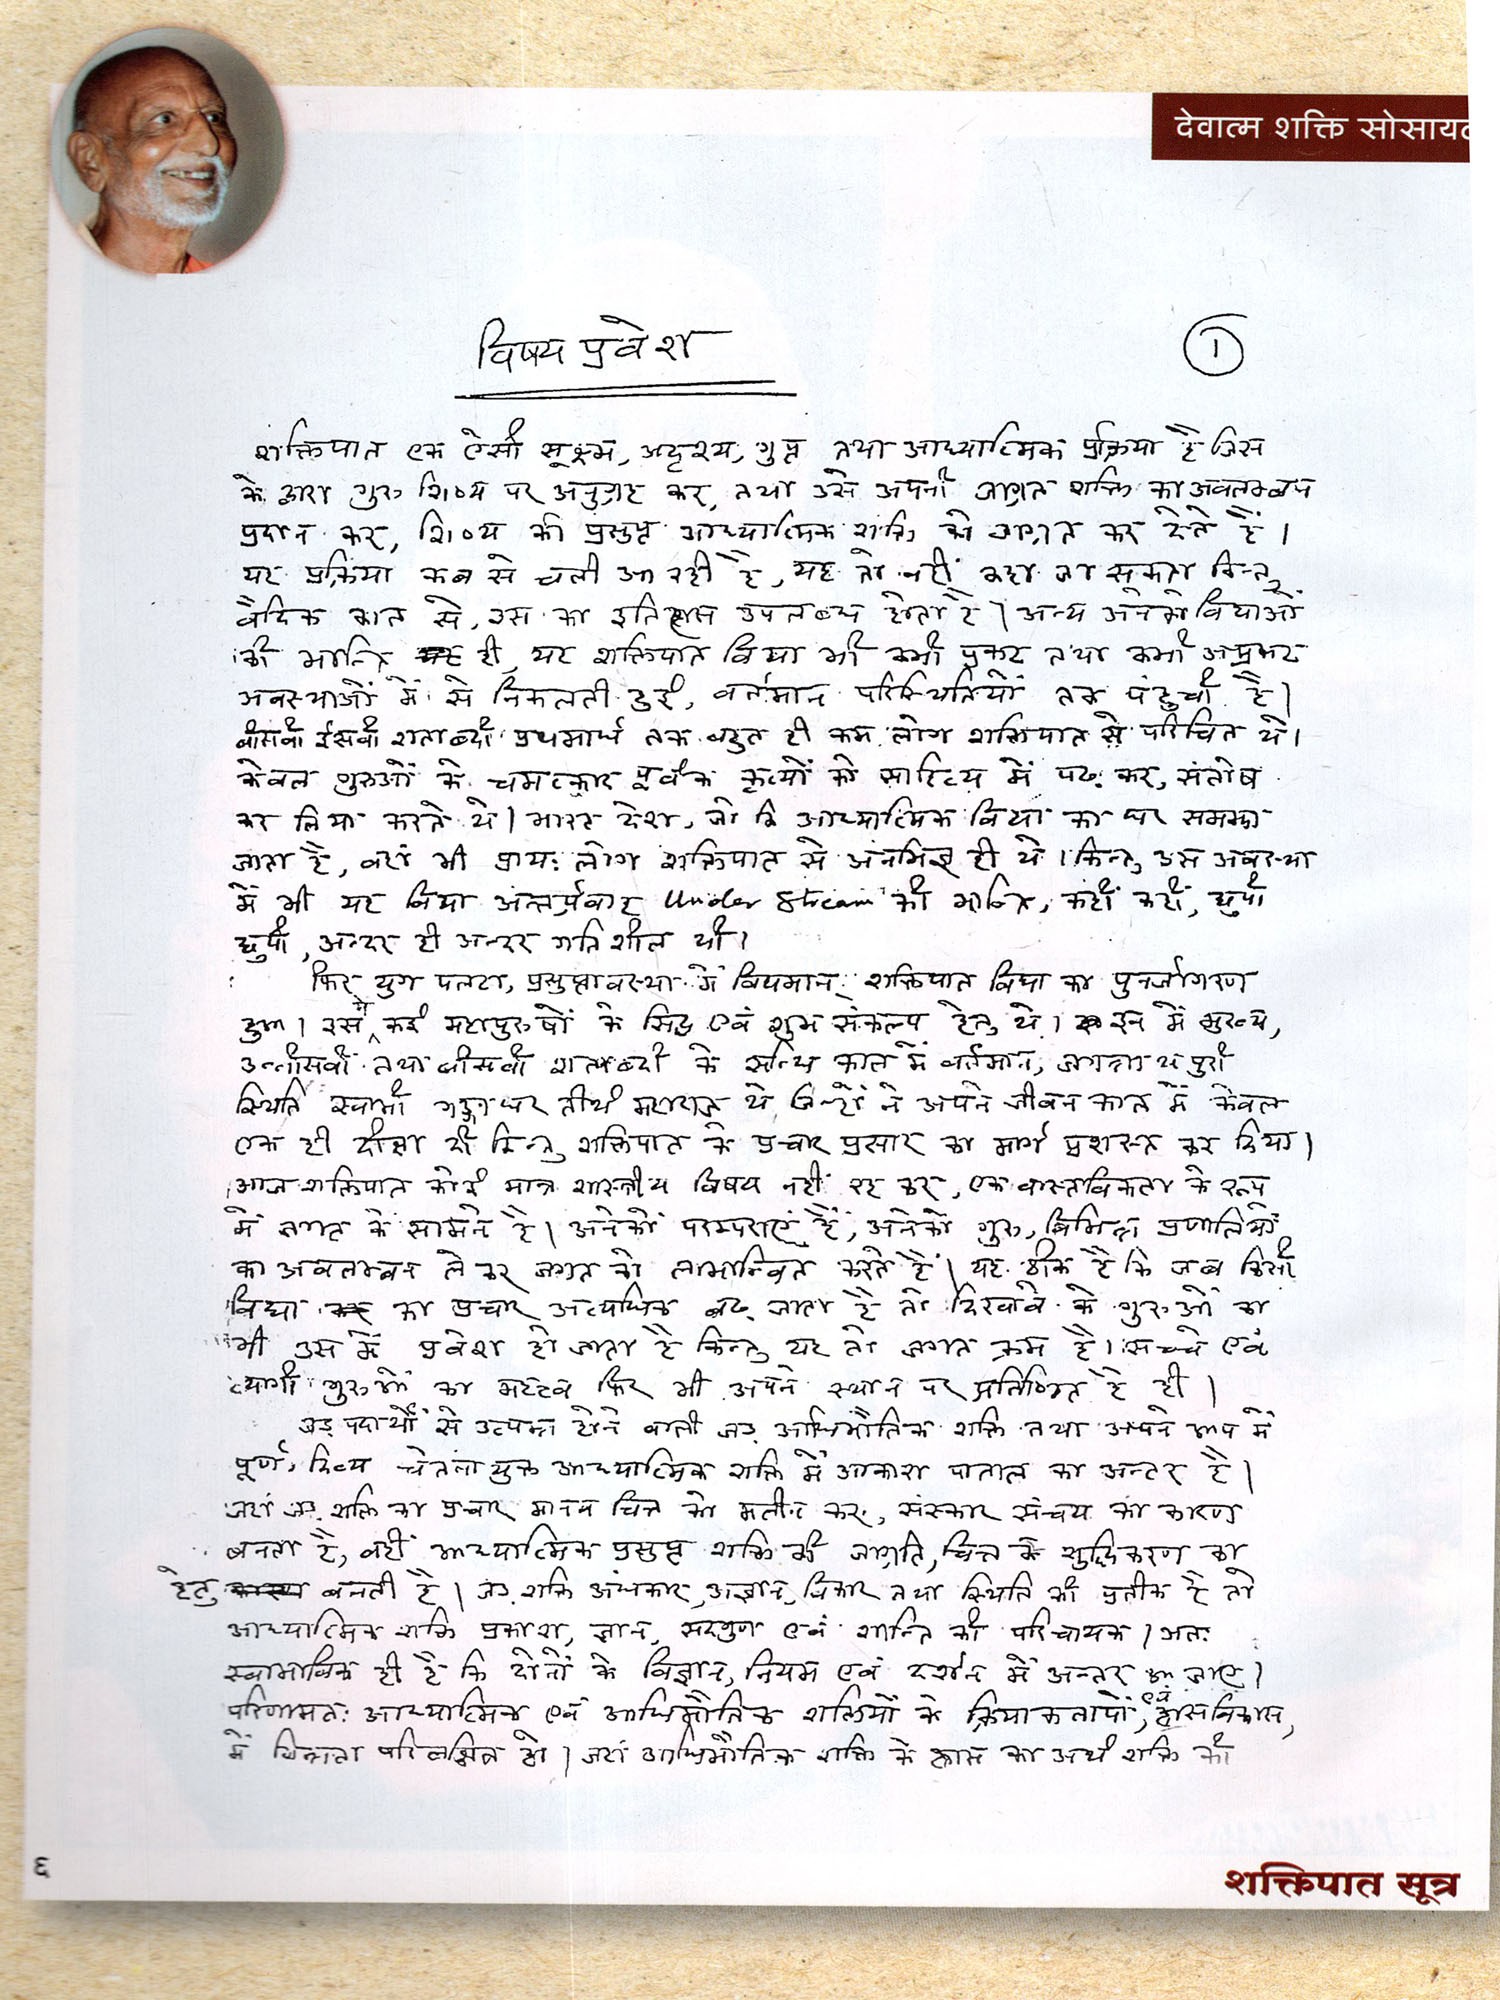 देवात्म शक्ति सोसायट
विषय प्रवेश
१
शक्तिपात एक ऐसी सूक्ष्म, अदृश्य, गुप्त तथा आध्यात्मिक प्रक्रिया है जिस
के द्वारा गुरु शिष्य पर अनुग्रह कर, तथा उसे अपनी जाग्रत शक्ति का अवलम्बन
प्रदान कर, शिष्य की प्रसुप्त आध्यात्मिक शक्ति को जाग्रत कर देते हैं।
यह प्रक्रिया कब से चली आ रही है, यह तो नहीं कहा जा सकता किन्तु
वैदिक काल से, उस का इतिहास उपलब्ध होता है। अन्य अनेकों विद्याओं
की भान्ति ही, यह शक्तिपात विद्या भी कभी प्रकट तथा कभी अप्रकट
अवस्थाओं में से निकलती हुई, वर्तमान परिस्थितियों तक पंहुची है।
बीसवीं ईसवीं शताब्दी प्रथमार्ध तक बहुत ही कम लोग शक्तिपात से परिचित थे।
केवल गुरुओं के चमत्कार पूर्वक कृत्यों को साहित्य में पढ़ कर, संतोष
कर लिया करते थे। भारत देश, जो कि आध्यात्मिक विद्या का घर समझा
जाता है, वहां भी प्रायः लोग शक्तिपात से अनभिज्ञ ही थे। किन्तु उस अवस्था
में भी यह विद्या अन्तर्प्रवाह Under Stream की भान्ति, कहीं कहीं, छुपी
छुपी, अन्दर ही अन्दर गतिशील थी।
फिर युग पलटा, प्रसुप्तावस्था में विद्यमान, शक्तिपात विद्या का पुनर्जागरण
हुआ। इसमें कई महापुरुषों के सिद्ध एवं शुभ संकल्प हेतु थे। इन में मुख्य,
उन्नीसवीं तथा बीसवीं शताब्दी के सन्धि काल में वर्तमान, जगन्नाथ पुरी
स्थिति स्वामी गङ्गाधर तीर्थ महाराज थे जिन्हों ने अपने जीवन काल में केवल
एक ही दीक्षा दी किन्तु शक्तिपात के प्रचार प्रसार का मार्ग प्रशस्त कर दिया।
आज शक्तिपात कोई मात्र शास्त्रीय विषय नहीं रह कर, एक वास्तविकता के रूप
में जगत के सामने है। अनेकों परम्पराएं हैं, अनेकों गुरु, विभिन्न प्रणालियों
का अवलम्बन ले कर जगत को लाभान्वित करते हैं। यह ठीक है कि जब किसी
विद्या का प्रचार अत्यधिक बढ़ जाता है तो दिखावे के गुरुओं का
भी उस में प्रवेश हो जाता है किन्तु यह तो जगत क्रम है। सच्चे एवं
त्यागी गुरुओं का महत्व फिर भी अपने स्थान पर प्रतिष्ठित है ही।
जड़ पदार्थों से उत्पन्न होने वाली जड़ आधिभौतिक शक्ति तथा अपने आप में
पूर्ण, दिव्य चेतनायुक्त आध्यात्मिक शक्ति में आकाश पाताल का अन्तर है।
जहां जड़ शक्ति का प्रचार मानव चित्त को मलीन कर, संस्कार संचय का कारण
बनता है, वहीं आध्यात्मिक प्रसुप्त शक्ति की जाग्रति, चित्त के शुद्धिकरण का
हेतु बनती है। जड़ शक्ति अंधकार, अज्ञान, विकार तथा स्थिति की प्रतीक है तो
आध्यात्मिक शक्ति प्रकाश, ज्ञान, सदगुण एवं शान्ति की परिचायक। अतः
स्वाभाविक ही है कि दोनों के विज्ञान, नियम एवं दर्शन में अन्तर आ जाए।
परिणामतः आध्यात्मिक एवं आधिभौतिक शक्तियों के क्रियाकलापों, एवं ह्रास विकास,
में भिन्नता परिलक्षित हो। जहां आधिभौतिक शक्ति के ह्रास का अर्थ शक्ति की
६
शक्तिपात सूत्र